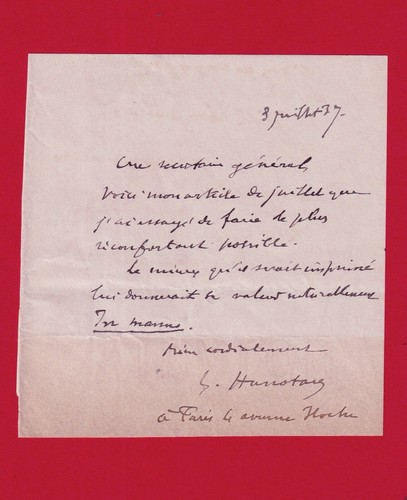 3 juillet 37.
secrétaire général,
Voici mon article de juillet que
j'ai essayé de faire le plus
réconfortant possible.
Le mieux qu'il serait imprimé
lui donnerait sa valeur naturellement
In manus.
bien cordialement
G. Hanotaux
à Paris avenue Hoche